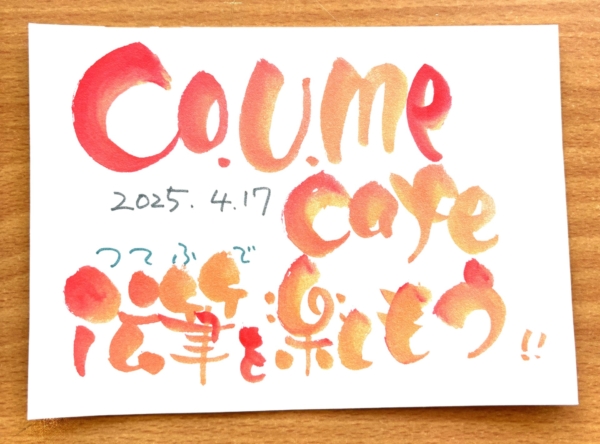 Co.U.me
cafe
2025. 4.17
つてふで
伝筆を楽しもう!!